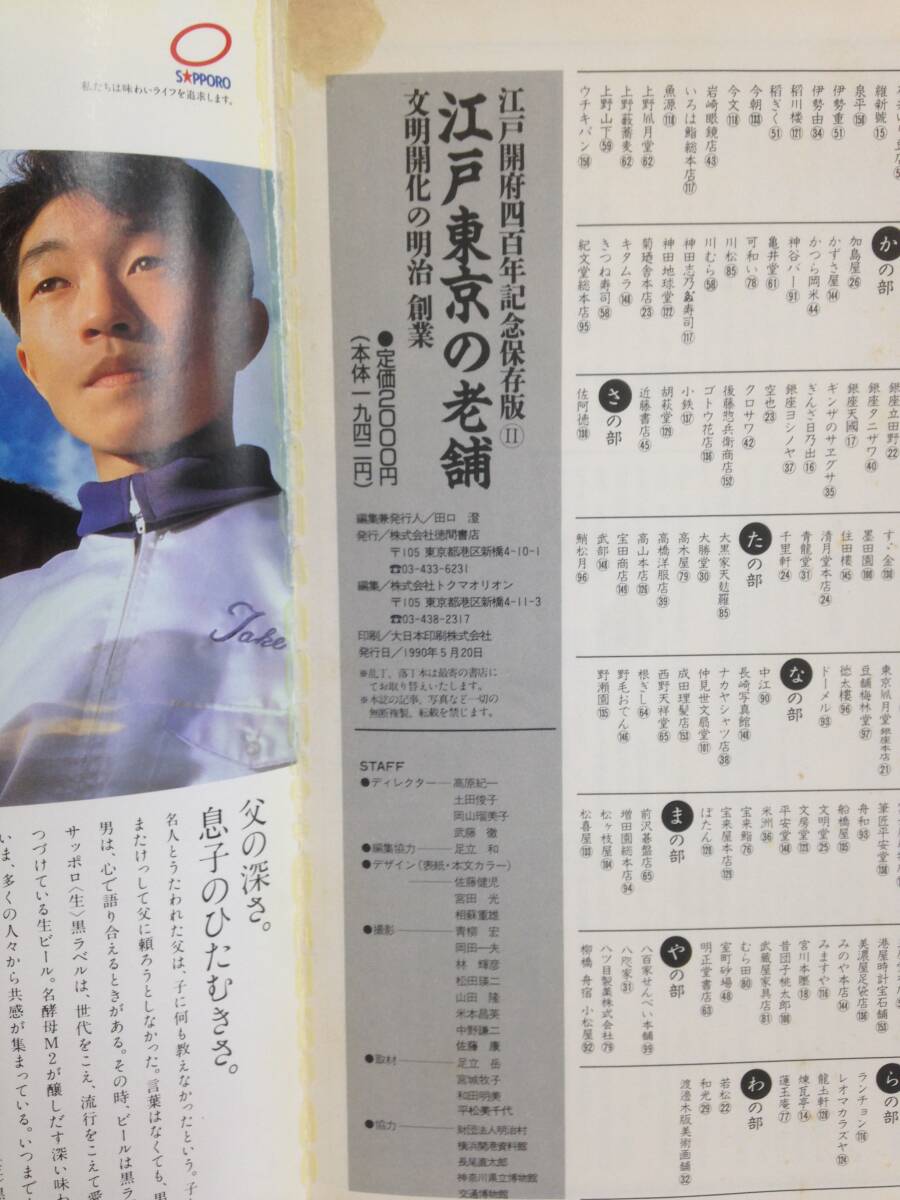 SAPPORO
私たちは味わいライフを追求します。
父の深さ。
息子のひたむきさ。
名人とうたわれた父は、子に何も教えなかったという。子
まただけっして父に頼ろうとしなかった。言葉はなくても、男
男は、心で語り合えるときがある。その時、ビールは黒ラ
サッポロ〈生〉黒ラベルは、世代をこえ、流行をこえて愛
つづけている生ビール。名酵母M2が醸しだす深い味わ
いま、多くの人々から共感が集まっている。いつまで
Take
江戸開府四百年記念保存版Ⅱ
江戸東京の老舗
文明開化の明治 創業
●定価2000円
(本体一九四二円)
編集兼発行人/田口 澄
発行/株式会社徳間書店
〒105 東京都港区新橋4-10-1
☎03-433-6231
編集/株式会社トクマオリオン
〒105 東京都港区新橋4-11-3
☎03-438-2317
印刷/大日本印刷株式会社
発行日/1990年5月20日
※乱丁、落丁本は最寄の書店に
てお取り替えいたします。
※本誌の記事、写真など一切の
無断複製、転載を禁じます。
STAFF
●ディレクター─高原紀一
土田俊子
岡山瑠美子
武藤 徹
●編集協力─足立 和
●デザイン(表紙・本文カラー)
─佐藤健児
宮田 光
相蘇重雄
●撮影─青柳 宏
岡田一夫
林 輝彦
松田瑛二
山田 隆
米本昌英
中野謙二
佐藤 康
●取材─足立 岳
宮城牧子
和田明美
平松美千代
●協力─財団法人明治村
横浜開港資料館
長尾直太郎
神奈川県立博物館
交通博物館
維新號⑮
泉平
伊勢重51
伊勢由34
稲川楼121
稲ぎく51
今朝
今文118
岩崎眼鏡店43
いろは鮨総本店117
魚源118
上野凮月堂62
上野藪蕎麦62
上野山下59
ウチキパン
かの部
加島屋26
かずさ屋144
かつら岡米44
神谷バー91
亀井堂61
可和い78
川松85
川むら58
神田志乃お寿司117
神田地球堂122
菊廼舎本店23
キタムラ
きつね寿司58
紀文堂総本店95
銀座立田野22
銀座タニザワ40
銀座天國17
ギンザのサヱグサ35
ぎんざ日乃出16
銀座ヨシノヤ37
空也23
クロサワ42
後藤惣兵衛商店152
ゴトウ花店
小鉄137
胡萩堂
近藤書店45
さの部
佐阿徳
す・金
墨田園
住田楼145
清月堂本店24
青龍堂31
千里軒24
たの部
大黒家天麩羅85
大勝堂30
髙木屋79
高橋洋服店39
高山本店
宝田商店
武部
鮹松月96
東京凮月堂銀座本店21
豆舗梅林堂97
徳太樓96
ドーメル93
なの部
中江90
長崎写真館
ナカヤシャツ店38
仲見世文扇堂101
成田理髪店
西野天祥堂65
根ぎし64
野毛おでん
野瀬園
筆匠平安堂
舟和93
船橋屋
文明堂25
文房堂
平安堂
米洲36
宝来鮨76
宝来屋本店
ぼたん
まの部
前沢碁盤店65
増田園総本店94
松ヶ枝屋
松喜屋
港屋時計宝石舗
美濃屋足袋店
みのや本店
みますや116
宮川本廛18
昔団子桃太郎
武蔵屋家具店81
むら田80
室町砂場48
明正堂書店63
やの部
八百家せんべい本舗99
八咫家31
八ツ目製薬株式会社79
柳橋 舟宿 小松屋92
らの部
ランチョン
レオマカラズヤ
龍土軒
煉瓦亭14
蓮玉庵77
わの部
若松22
和光29
渡邊木版美術画舗32